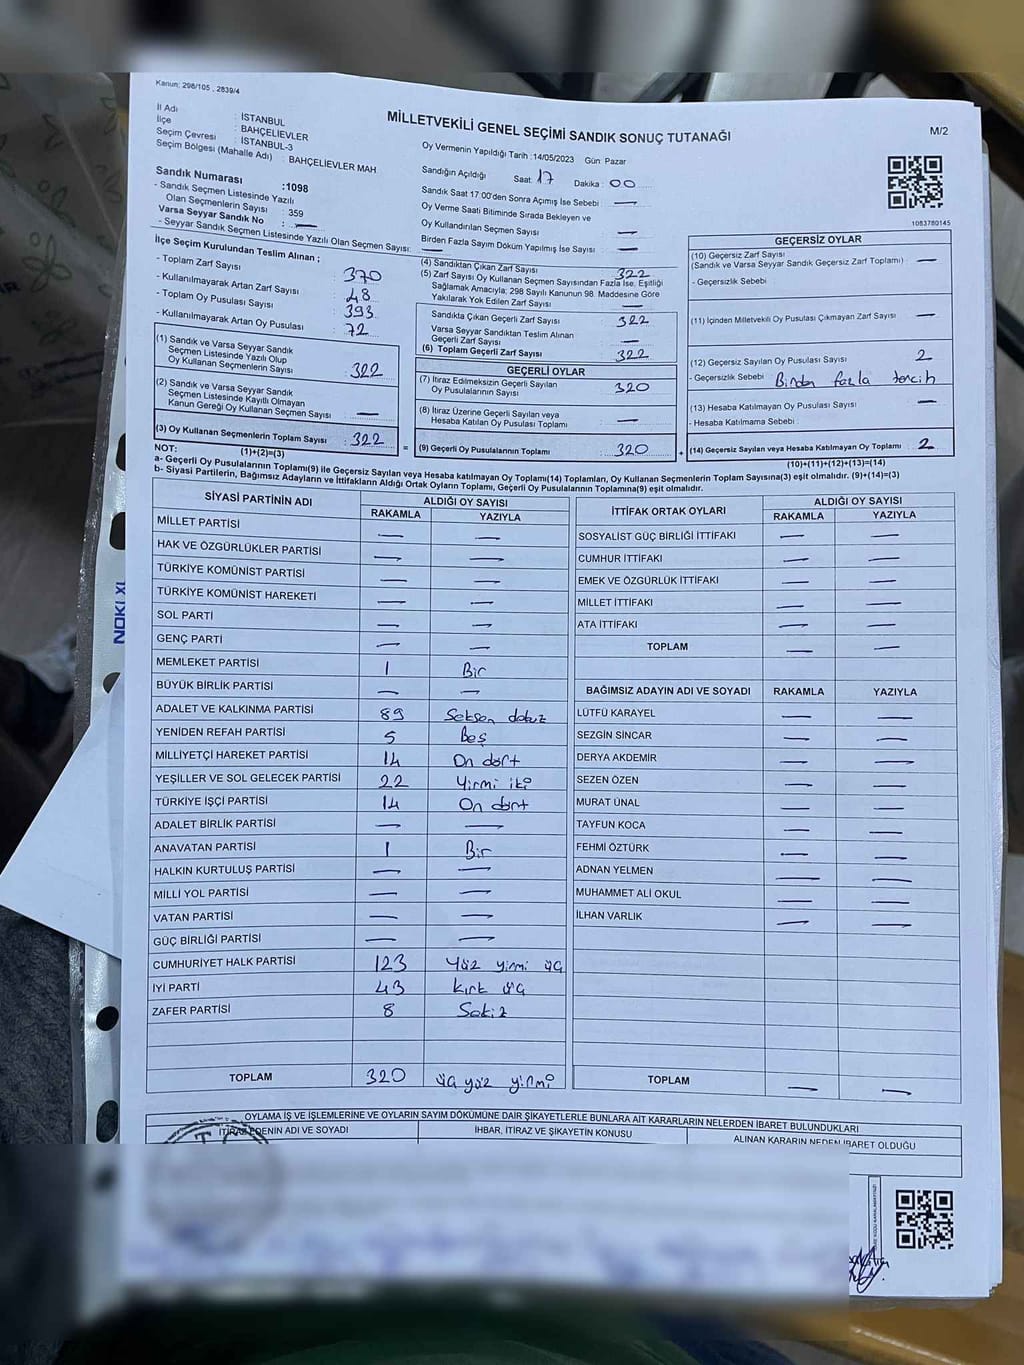 Kanun: 298/105 , 2839/4
MİLLETVEKİLİ GENEL SEÇİMİ SANDIK SONUÇ TUTANAĞI
M/2
İl Adı : İSTANBUL
İlçe : BAHÇELİEVLER
Seçim Çevresi : İSTANBUL-3
Seçim Bölgesi (Mahalle Adı) : BAHÇELİEVLER MAH
Sandık Numarası :1098
- Sandık Seçmen Listesinde Yazılı
Olan Seçmenlerin Sayısı : 359
Varsa Seyyar Sandık No : —
- Seyyar Sandık Seçmen Listesinde Yazılı Olan Seçmen Sayısı: —
Oy Vermenin Yapıldığı Tarih :14/05/2023 Gün: Pazar
Sandığın Açıldığı Saat: 17 Dakika : 00
Sandık Saat 17:00'den Sonra Açımış İse Sebebi —
Oy Verme Saati Bitiminde Sırada Bekleyen ve
Oy Kullandırılan Seçmen Sayısı —
Birden Fazla Sayım Döküm Yapılmış İse Sayısı —
1083780145
İlçe Seçim Kurulundan Teslim Alınan ;
- Toplam Zarf Sayısı 370
- Kullanılmayarak Artan Zarf Sayısı : 48
- Toplam Oy Pusulası Sayısı 393
- Kullanılmayarak Artan Oy Pusulası 72
(1) Sandık ve Varsa Seyyar Sandık
Seçmen Listesinde Yazılı Olup
Oy Kullanan Seçmenlerin Sayısı : 322
(2) Sandık ve Varsa Seyyar Sandık
Seçmen Listesinde Kayıtlı Olmayan
Kanun Gereği Oy Kullanan Seçmen Sayısı : —
(3) Oy Kullanan Seçmenlerin Toplam Sayısı : 322
(1)+(2)=(3)
(4) Sandıktan Çıkan Zarf Sayısı 322
(5) Zarf Sayısı Oy Kullanan Seçmen Sayısından Fazla İse, Eşitliği
Sağlamak Amacıyla; 298 Sayılı Kanunun 98. Maddesine Göre
Yakılarak Yok Edilen Zarf Sayısı —
Sandıkta Çıkan Geçerli Zarf Sayısı : 322
Varsa Seyyar Sandıktan Teslim Alınan
Geçerli Zarf Sayısı : —
(6) Toplam Geçerli Zarf Sayısı 322
GEÇERLİ OYLAR
(7) İtiraz Edilmeksizin Geçerli Sayılan
Oy Pusulalarının Sayısı : 320
(8) İtiraz Üzerine Geçerli Sayılan veya
Hesaba Katılan Oy Pusulası Toplamı : —
= (9) Geçerli Oy Pusulalarının Toplamı : 320
GEÇERSİZ OYLAR
(10) Geçersiz Zarf Sayısı
(Sandık ve Varsa Seyyar Sandık Geçersiz Zarf Toplamı) : —
- Geçersizlik Sebebi
(11) İçinden Milletvekili Oy Pusulası Çıkmayan Zarf Sayısı : —
(12) Geçersiz Sayılan Oy Pusulası Sayısı : 2
- Geçersizlik Sebebi Birden fazla tercih
(13) Hesaba Katılmayan Oy Pusulası Sayısı : —
- Hesaba Katılmama Sebebi :
+ (14) Geçersiz Sayılan veya Hesaba Katılmayan Oy Toplamı : 2
(10)+(11)+(12)+(13)=(14)
NOT:
a- Geçerli Oy Pusulalarının Toplamı(9) ile Geçersiz Sayılan veya Hesaba katılmayan Oy Toplamı(14) Toplamları, Oy Kullanan Seçmenlerin Toplam Sayısına(3) eşit olmalıdır. (9)+(14)=(3)
b- Siyasi Partilerin, Bağımsız Adayların ve İttifakların Aldığı Ortak Oyların Toplamı, Geçerli Oy Pusulalarının Toplamına(9) eşit olmalıdır.
SİYASİ PARTİNİN ADI ALDIĞI OY SAYISI
RAKAMLA YAZIYLA
MİLLET PARTİSİ — —
HAK VE ÖZGÜRLÜKLER PARTİSİ — —
TÜRKİYE KOMÜNİST PARTİSİ — —
TÜRKİYE KOMÜNİST HAREKETİ — —
SOL PARTİ — —
GENÇ PARTİ — —
MEMLEKET PARTİSİ 1 Bir
BÜYÜK BİRLİK PARTİSİ — —
ADALET VE KALKINMA PARTİSİ 89 Seksen dokuz
YENİDEN REFAH PARTİSİ 5 Beş
MİLLİYETÇİ HAREKET PARTİSİ 14 On dört
YEŞİLLER VE SOL GELECEK PARTİSİ 22 Yirmi iki
TÜRKİYE İŞÇİ PARTİSİ 14 On dört
ADALET BİRLİK PARTİSİ — —
ANAVATAN PARTİSİ 1 Bir
HALKIN KURTULUŞ PARTİSİ — —
MİLLİ YOL PARTİSİ — —
VATAN PARTİSİ — —
GÜÇ BİRLİĞİ PARTİSİ — —
CUMHURİYET HALK PARTİSİ 123 Yüz yirmi üç
İYİ PARTİ 43 kırk üç
ZAFER PARTİSİ 8 Sekiz
TOPLAM 320 üç yüz yirmi
İTTİFAK ORTAK OYLARI ALDIĞI OY SAYISI
RAKAMLA YAZIYLA
SOSYALİST GÜÇ BİRLİĞİ İTTİFAKI — —
CUMHUR İTTİFAKI — —
EMEK VE ÖZGÜRLÜK İTTİFAKI — —
MİLLET İTTİFAKI — —
ATA İTTİFAKI — —
TOPLAM — —
BAĞIMSIZ ADAYIN ADI VE SOYADI RAKAMLA YAZIYLA
LÜTFÜ KARAYEL — —
SEZGİN SİNCAR — —
DERYA AKDEMİR — —
SEZEN ÖZEN — —
MURAT ÜNAL — —
TAYFUN KOCA — —
FEHMİ ÖZTÜRK — —
ADNAN YELMEN — —
MUHAMMET ALİ OKUL — —
İLHAN VARLIK — —
TOPLAM — —
OYLAMA İŞ VE İŞLEMLERİNE VE OYLARIN SAYIM DÖKÜMÜNE DAİR ŞİKAYETLERLE BUNLARA AİT KARARLARIN NELERDEN İBARET BULUNDUKLARI
İTİRAZ EDENİN ADI VE SOYADI İHBAR, İTİRAZ VE ŞİKAYETİN KONUSU ALINAN KARARIN NEDEN İBARET OLDUĞU
NOKI XL